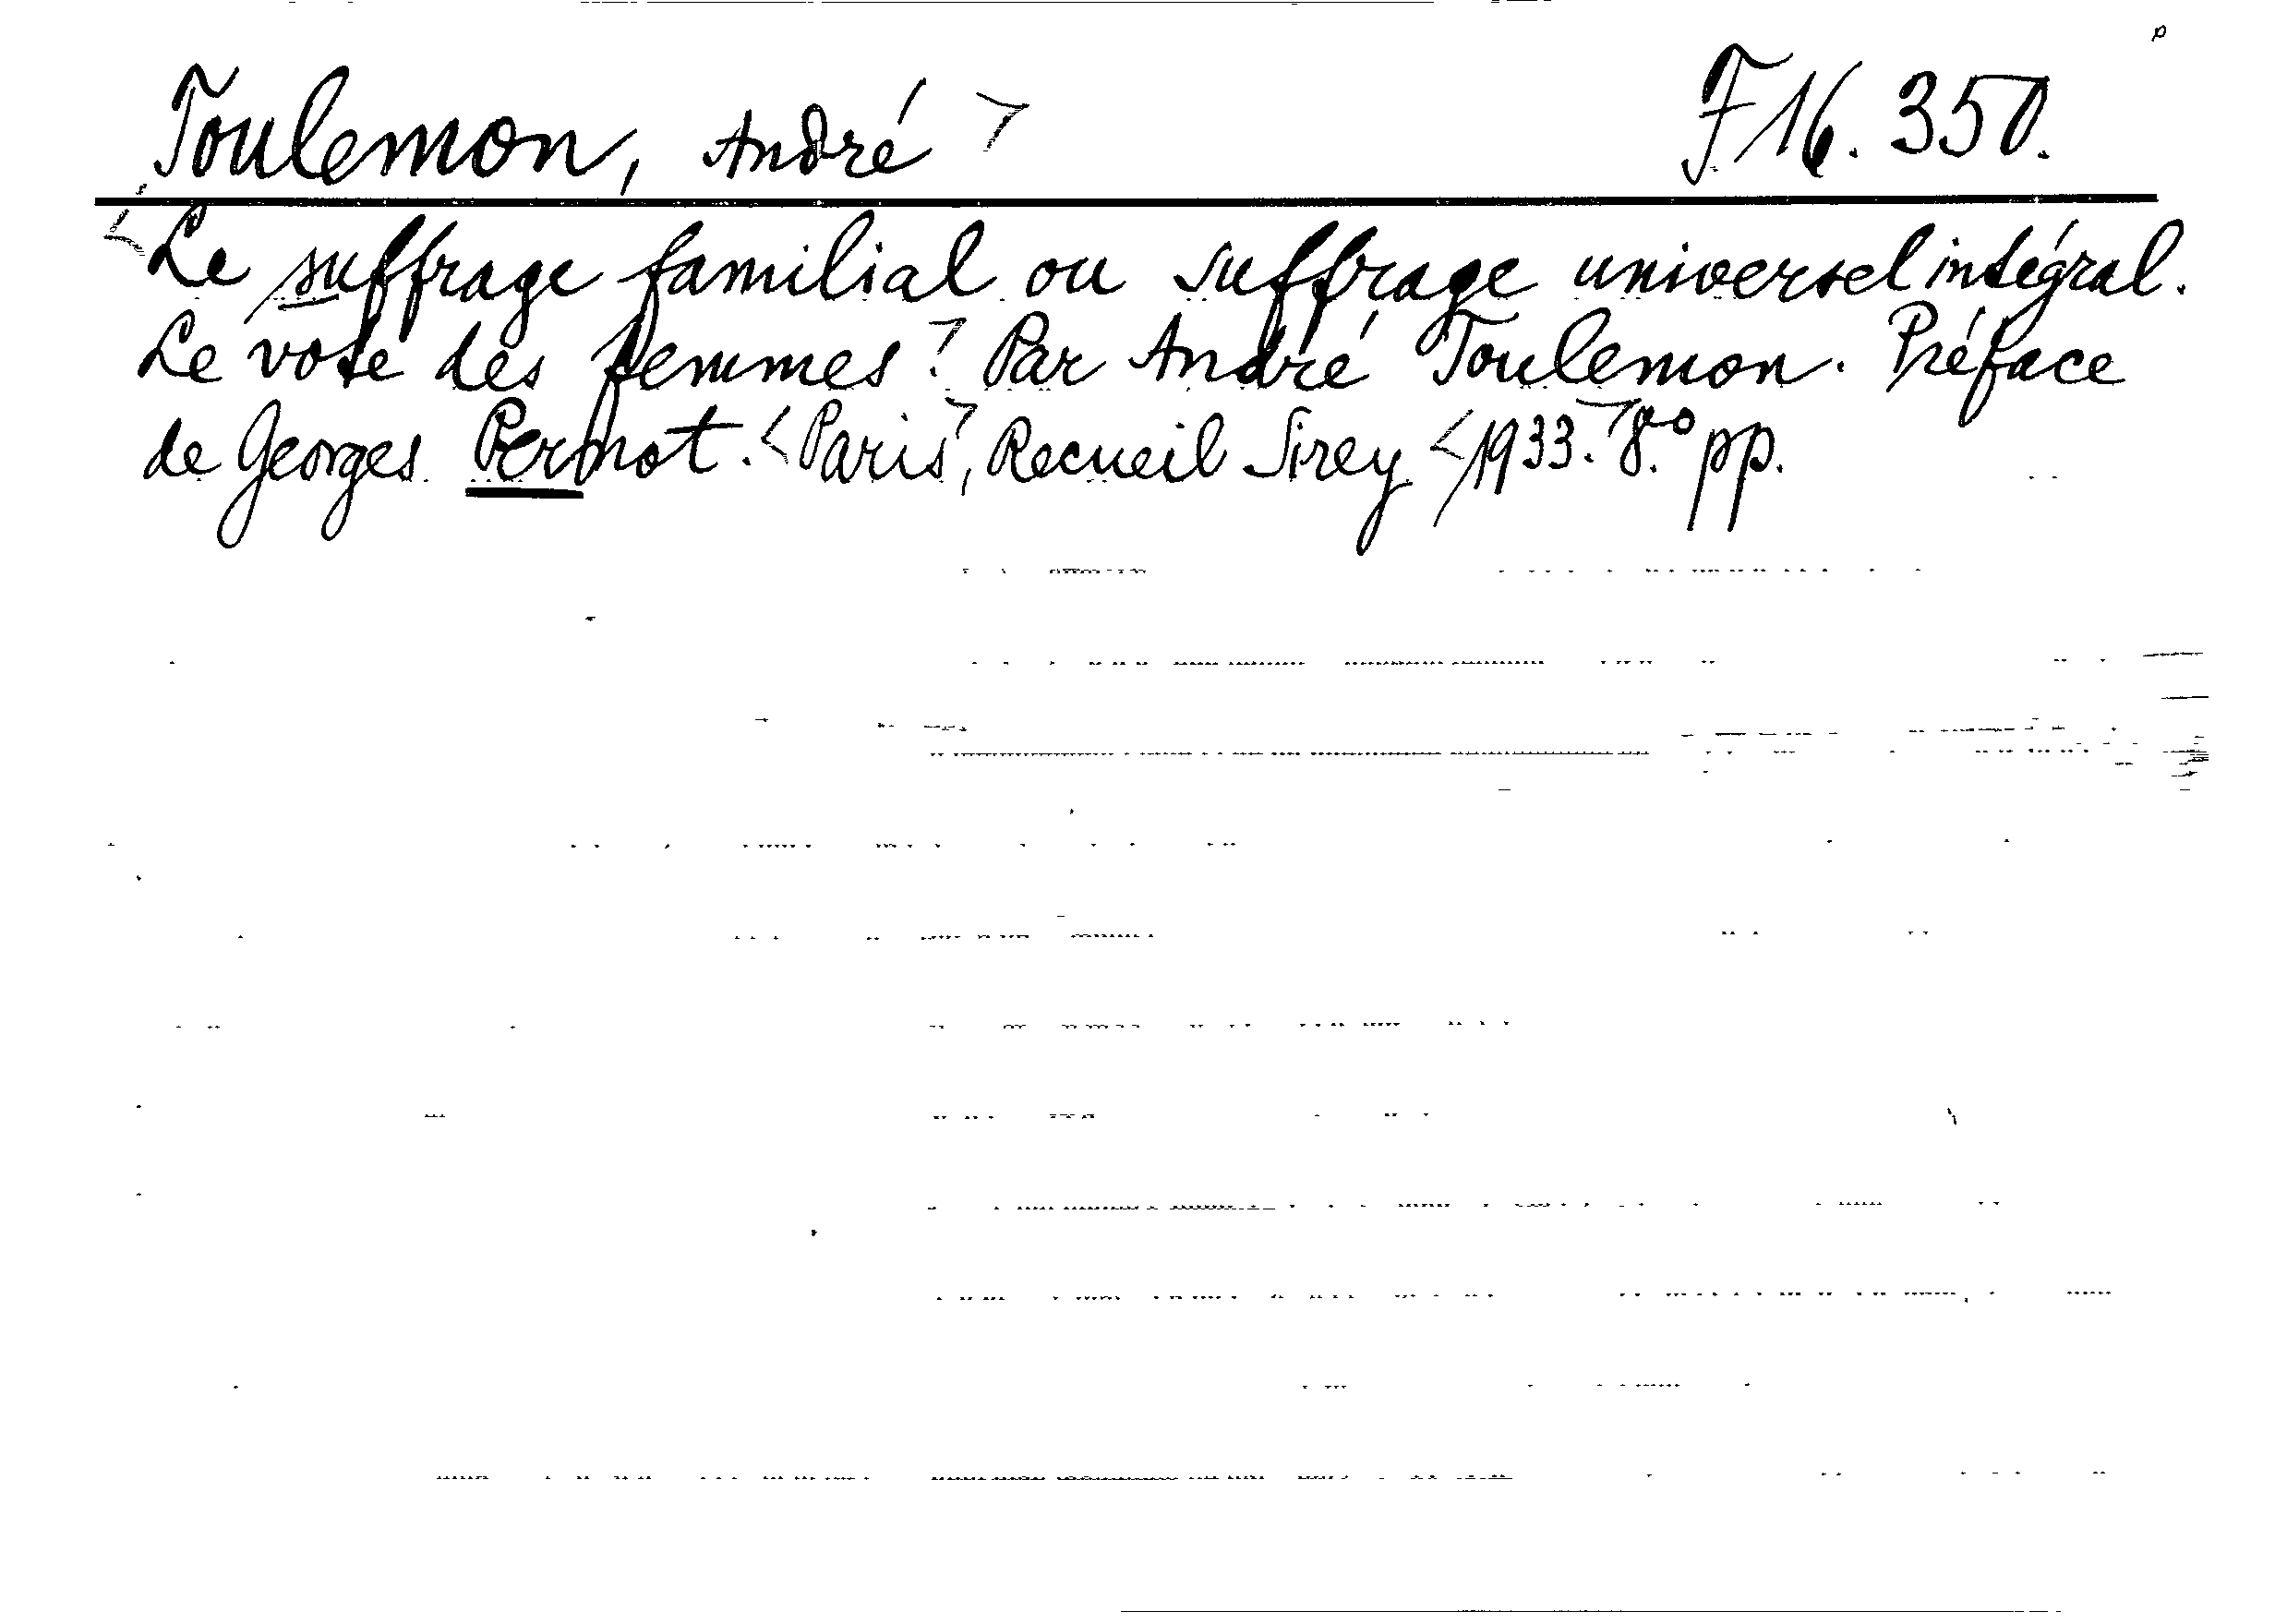 Toulemon, André > F 16.350.
<Le suffrage familial ou suffrage universel intégral.
Le vote des femmes.> Par André Toulemon. Préface
de Georges Pernot. <Paris>, Recueil Sirey <1933.> 8.º pp.